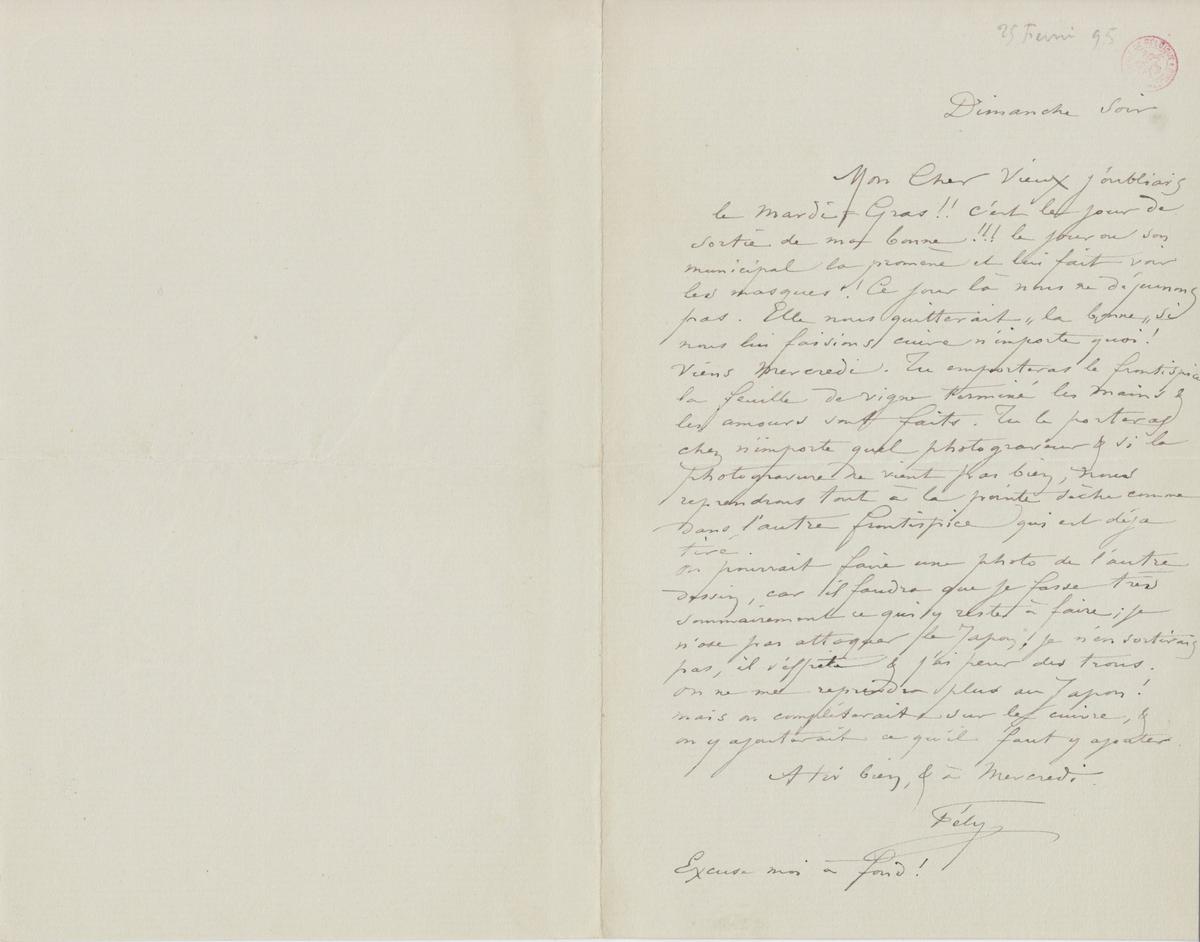 25 Fevri 95
Dimanche Soir
Mon Cher Vieux j'oubliais
le Mardi-Gras!! c'est le jour de
sortie de ma bonne!!! le jour ou son
municipal la promène et lui fait voir
les masques! Ce jour là nous ne déjeunons
pas. Elle nous quitterait „la bonne„ si
nous lui faisions cuire n'importe quoi!
Viens Mercredi. Tu emporteras le frontispice
la feuille de vigne terminé les mains &
les amours sont faits. Tu le porteras
chez n'importe quel photograveur & si la
photogravure ne vient pas bien, nous
reprendrons tout à la pointe sèche comme
dans l'autre frontispice qui est déja
tiré.
On pourrait faire une photo de l'autre
dessin, car il faudra que je fasse très
sommairement ce qui y reste à faire; je
n'ose pas attaquer le Japon, je n'en sortirais
pas, il s'effrite & j'ai peur des trous.
On ne me reprendra plus au Japon!
mais on complèterait sur le cuivre, &
on y ajouterait ce qu'il faut y ajouter
A toi bien, & à Mercredi.
Fély
Excuse moi à fond!